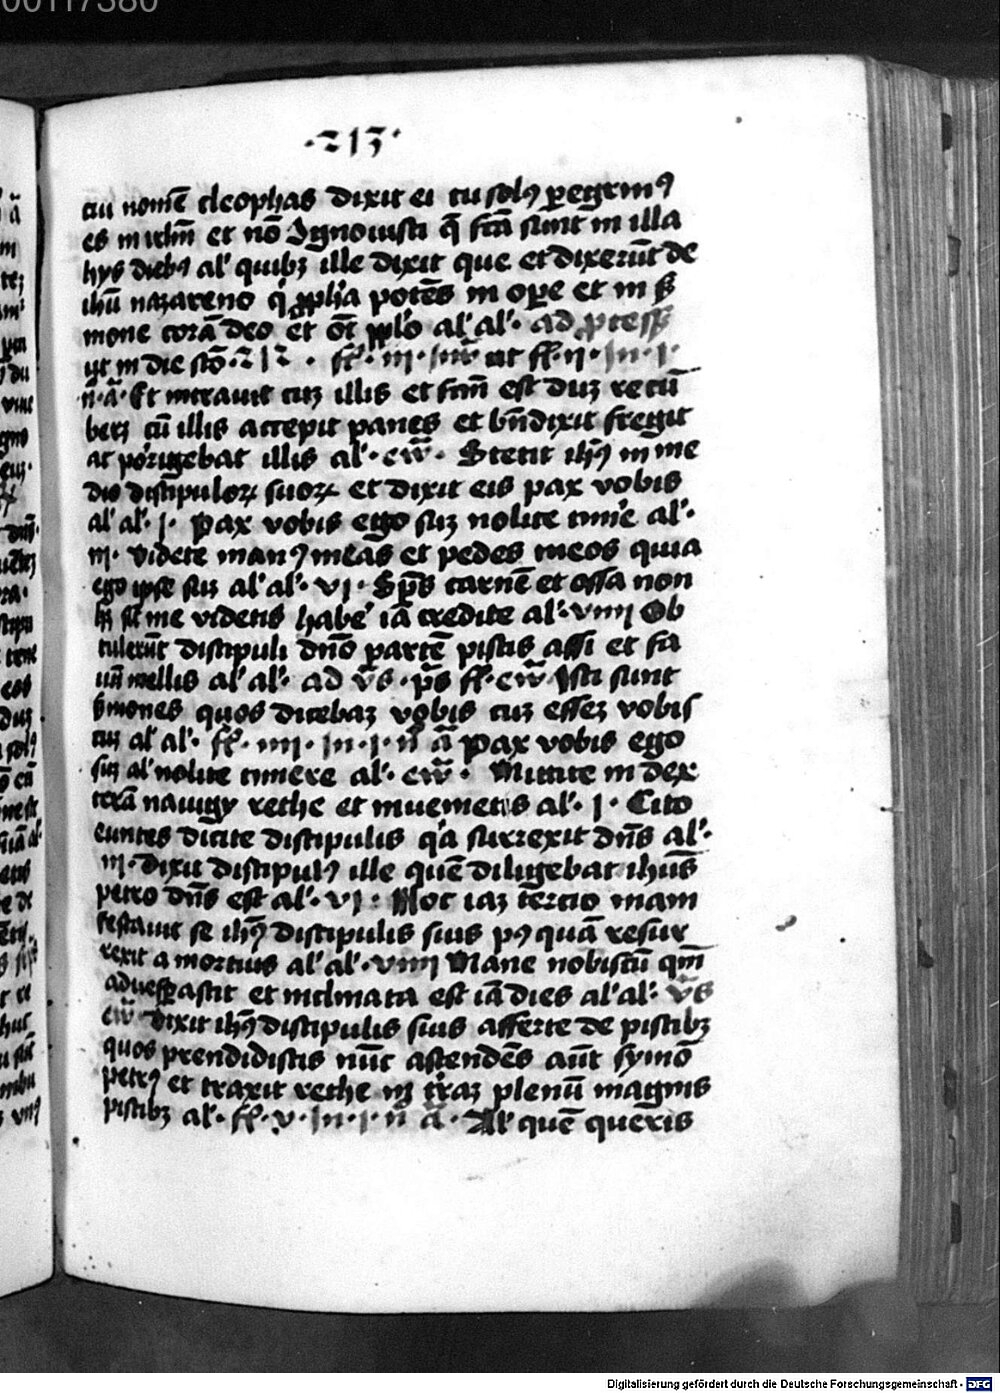 00117380
·213·
cui nomē cleophas dixit ei tu solꝰ ꝑegrinꝰ
es in irl̄m et nō Ignouisti q̄ fc̄a sunt in illa
hys diebꝰ al' quibꝫ ille dixit que et dixerūt de
ihū nazareno q' ꝓph̄a potēs in oꝑe et in s̄
mone corā deo et oī pplō al' al'· ad
ut in die scō· 212 · ff'· iii · ut ff'· ii · In · i ·
n̄· ā· Et intrauit cuꝫ illis et fcm̄ est duꝫ recū
beret cū illis accepit panes et bn̄dixit fregit
ac porigebat illis al'· ew̄· Stetit ihꝰ in me
dio discipuloꝝ suoꝝ et dixit eis pax vobis
al' al'· i · Pax vobis ego suꝫ nolite timē al'·
iii· videte manꝰ meas et pedes meos quia
ego ipse suꝫ al' al'· vi · Sp̄s carnē et ossa non
hꝫ sic̄ me videtis habē' iā credite al'· viiii Ob
tulerūt discipuli dn̄o partē piscis assi et fa
uū mellis al' al'· ad v̄s · p̄s ff'· ew̄ Isti sunt
s̄mones quos dicebaꝫ vobis cuꝫ esseꝫ vobis
cuꝫ al' al'· ff'· iiii · In · i · n̄ ā Pax vobis ego
suꝫ al' nolite timere al'· ew̄· Mittite in dex
terā nauigy rethe et inuenietis al'· i · Cito
euntes dicite discipulis q'a surrexit dn̄s al'·
iii· Dixit discipulꝰ ille quē diligebat ihūs
petro dn̄s est al'· vi · Hoc iaꝫ tercio mani
festauit se ihꝰ discipulis suis pꝰ quā resur
rexit a mortuis al' al'· viiii Mane nobiscū qm̄
aduesꝑascit et inclinata est iā dies al' al'· v̄s
ew̄· Dixit ihꝰ discipulis suis afferte de piscibꝫ
quos prendidistis nūc ascendēs aūt symō
petrꝰ et traxit rethe in t'raꝫ plenū magnis
piscibꝫ al'· ff'· v · In · i · n̄ ā · Al' quē queris
Digitalisierung gefördert durch die Deutsche Forschungsgemeinschaft - DFG